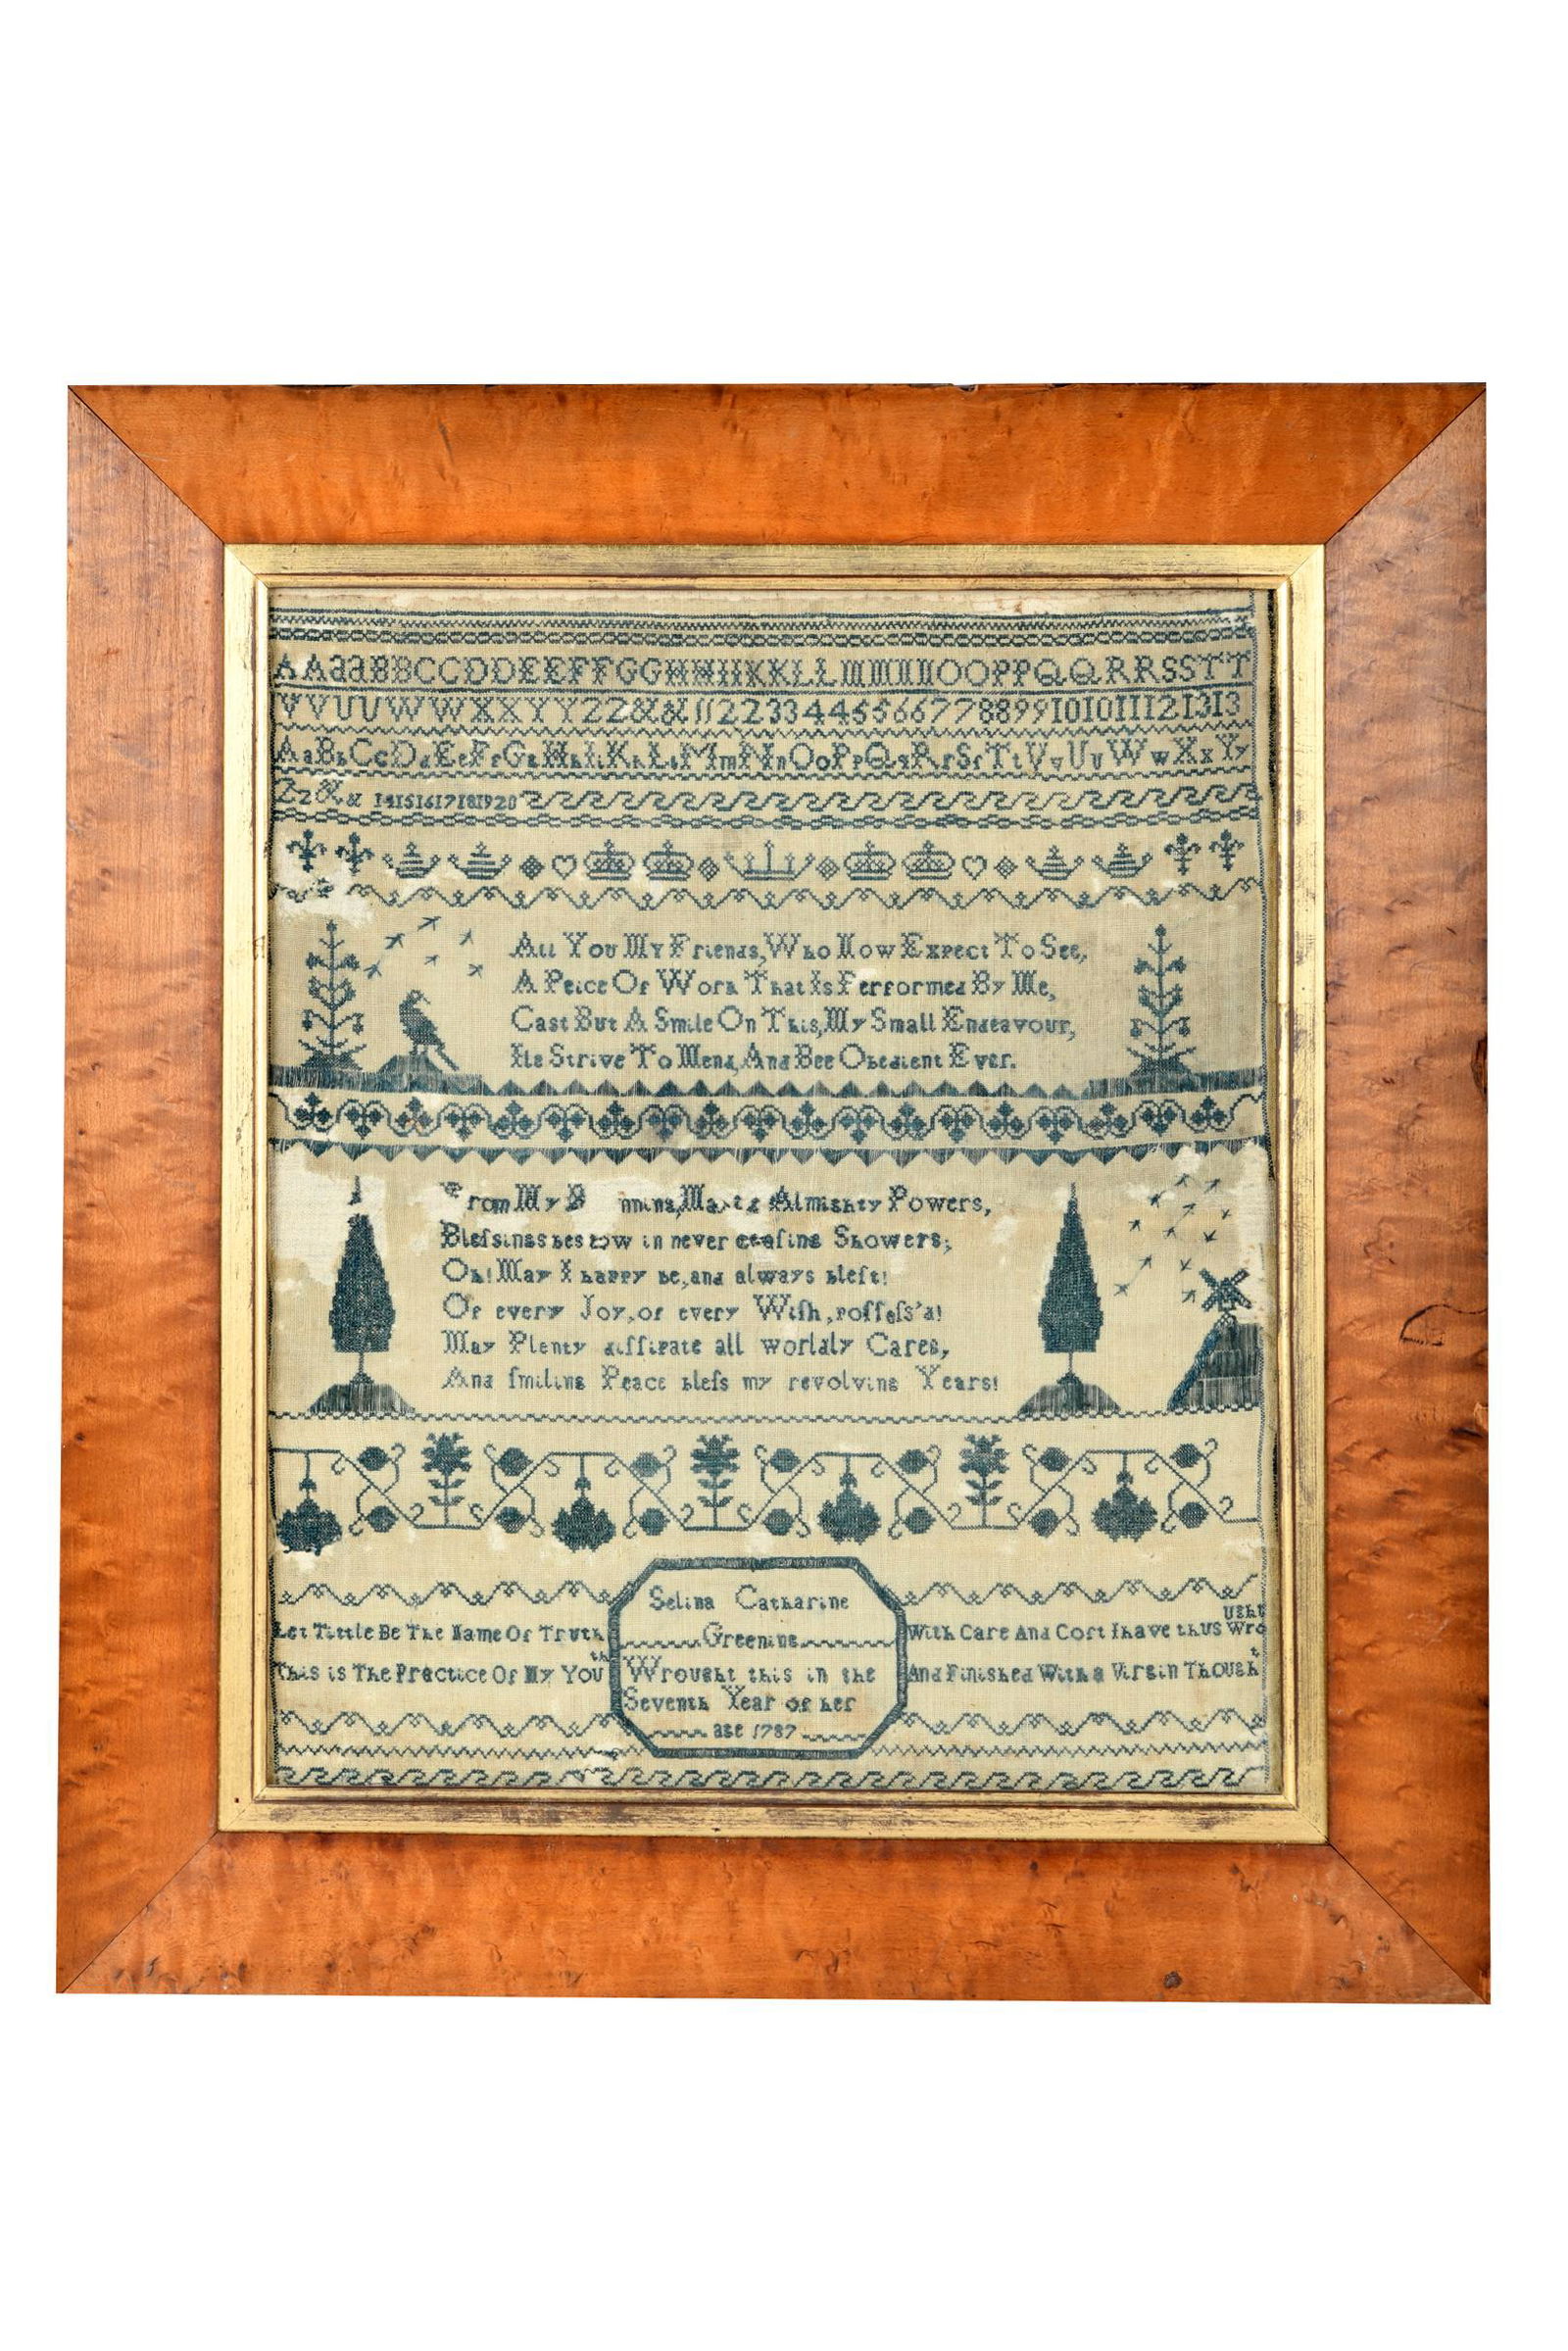 AAaaBBCCDDEEFFGGHHIIKKLLMMNNOOPPQQRRSSTT
VVUUWWXXYYZZ&&112233445566778899101011121313
AaBbCcDdEeFfGgHhIiKkLlMmNnOoPpQqRrSsTtVvUuWwXxYy
Zz&& 14151617181920
All You My Friends, Who Now Expect To See,
A Peice Of Work That Is Performed By Me,
Cast But A Smile On This, My Small Endeavour,
Ile Strive To Mend, And Bee Obedient Ever.
From My Almighty Powers,
Bleſsings bestow in never ceaſing Showers;
Oh! May I happy be, and always bleſt!
Of every Joy, of every Wiſh, poſſeſs'd!
May Plenty diſſipate all worldly Cares,
And ſmiling Peace bleſs my revolving Years!
Selina Catharine
Greening
Wrought this in the
Seventh Year of her
age 1787
Let Tittle Be The Name Of Truth
This is The Practice Of My Youth
With Care And Cost I have thus Wrought
And Finished With a Virgin Thought